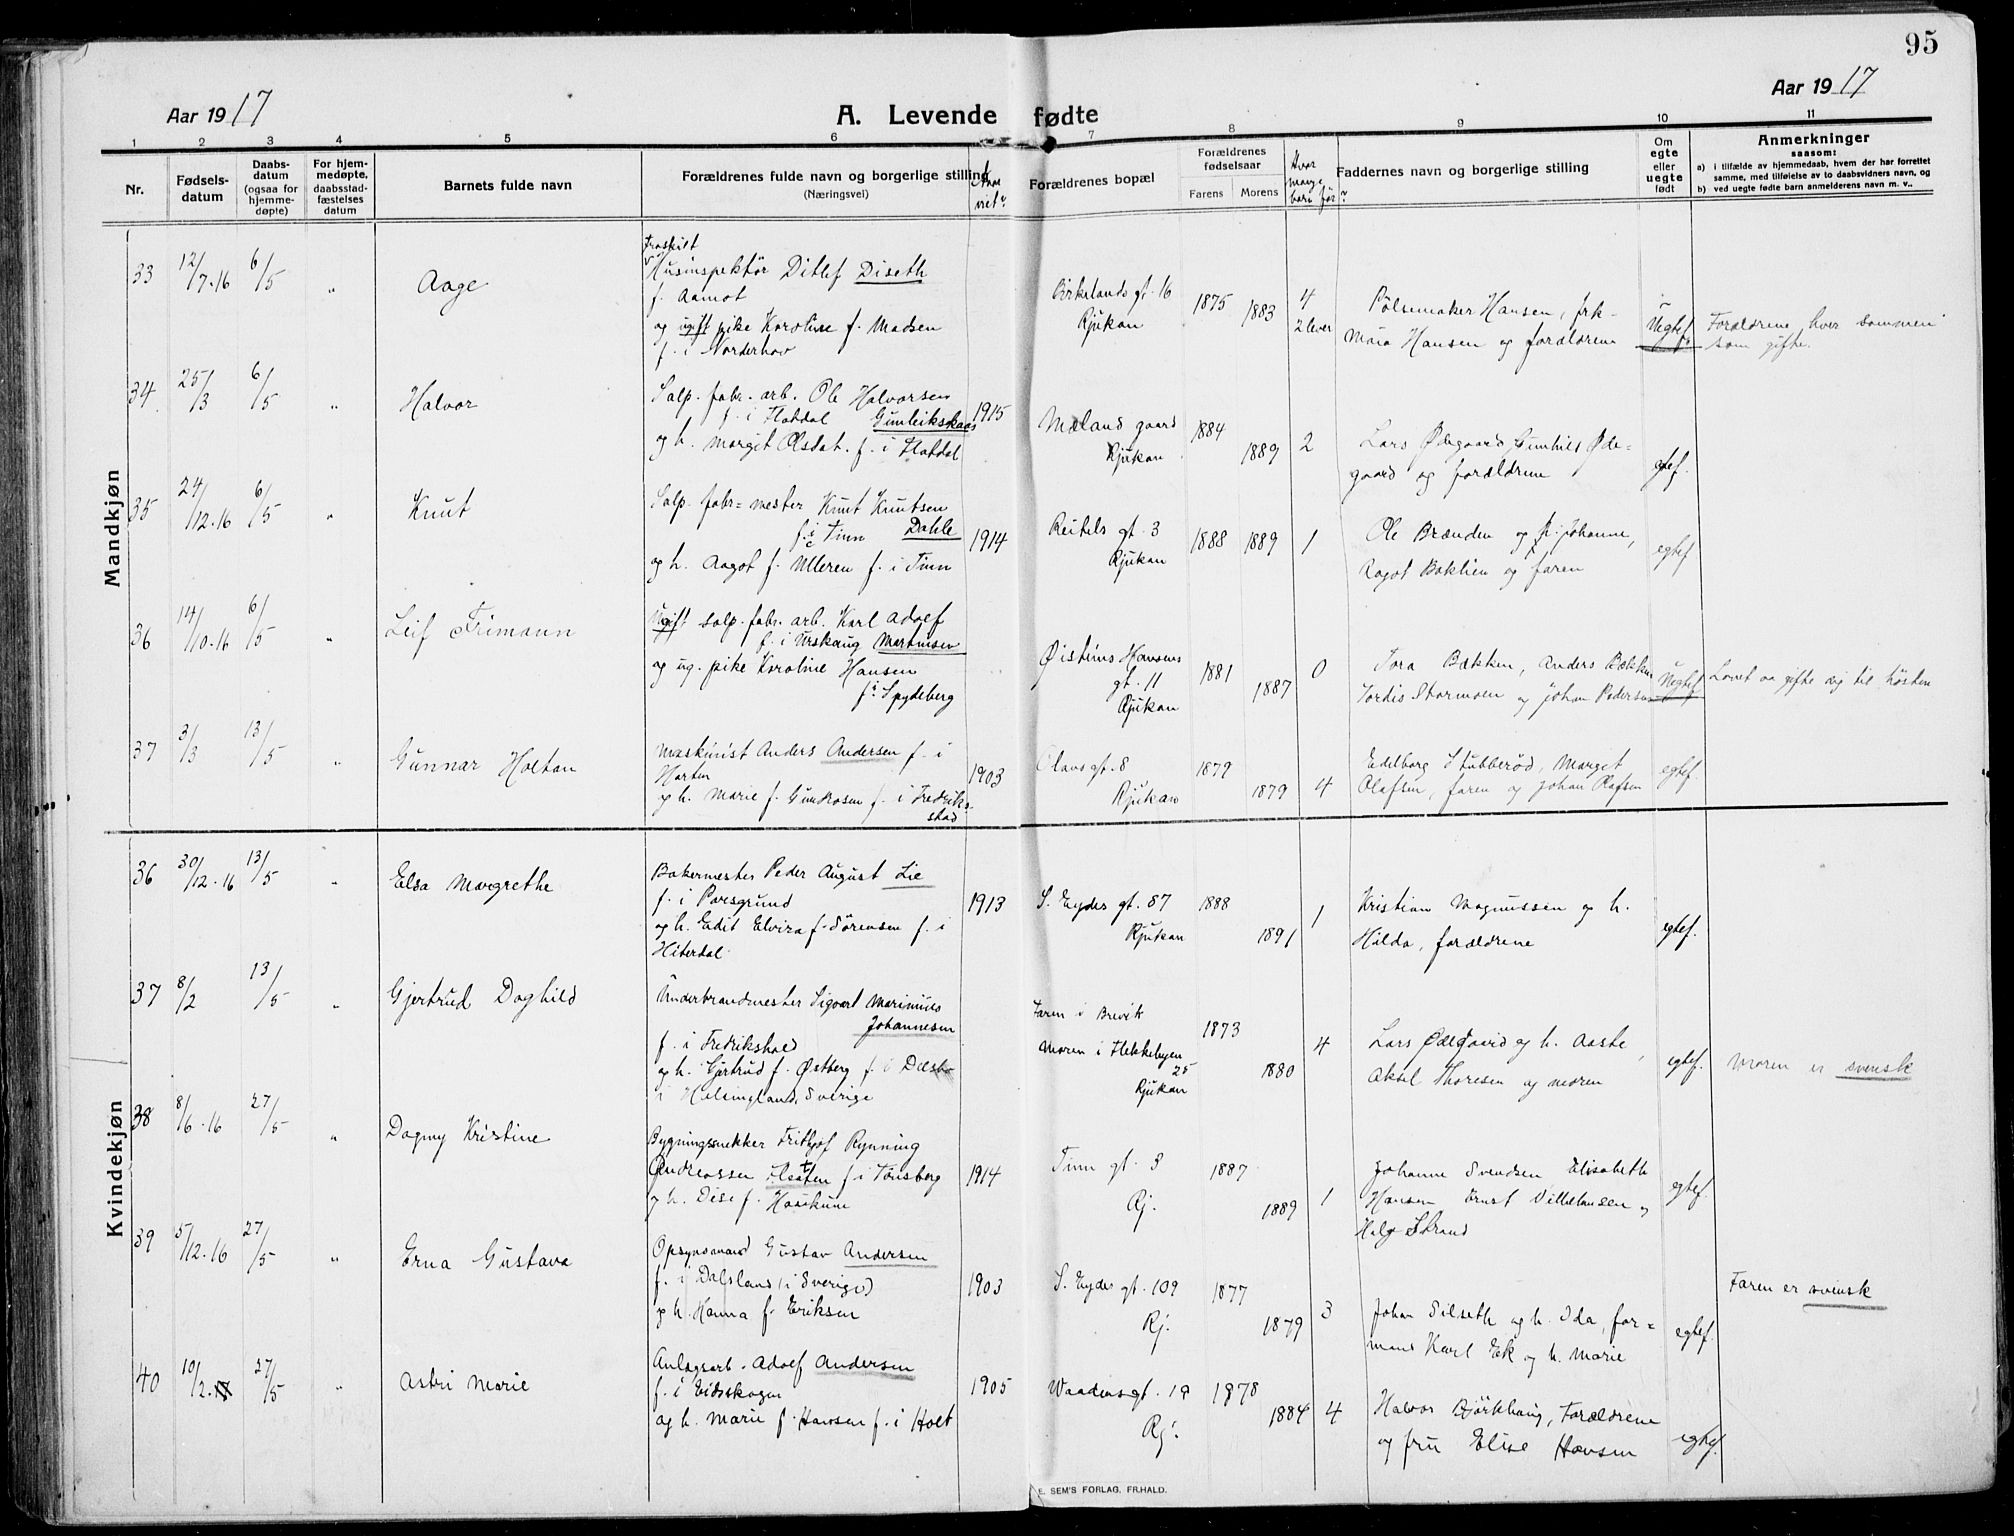 95
Aar 1917
A. Levende fødte
Aar 1917
1 2 3 4 5 6 7 8 9 10 11
Nr.
Fødsels-
datum
Daabs-
datum
(ogsaa for
hjemme-
døpte)
For hjem-
medøpte,
daabsstad-
fæstelses
datum
Barnets fulde navn
Forældrenes fulde navn og borgerlige stilling
(Næringsvei)
Forældrenes bopæl
Forældrenes
fødselsaar
Farens Morens
Hvor
mange
barn før?
Faddernes navn og borgerlige stilling
Om
egte
eller
uegte
født
Anmerkninger
saasom:
a) i tilfælde av hjemmedaab, hvem der har forrettet
samme, med tilføielse av to daabsvidners navn, og
b) ved uegte fødte barn anmelderens navn m. v..
Mandkjøn
33 12/7.16 6/5 " Aage
Fraskilt
Husinspektör Ditlef Diseth
f. Aamot
og ugift pike Karoline f. Madsen
f. i Norderhov
Birkelands gt. 16
Rjukan
1875 1883 4
2 lever
Pölsemaker Hansen, frk.
Maia Hansen og forældrene
Uegtef.
Forældrene lever sammen
som gifte.
34 25/3 6/5 " Halvor
Salp. fabr. arb. Ole Halvorsen
f. i Flatdal Gunleikskaas
og h. Margit Olsdat. f. i Flatdal
1915
Mæland gaard
Rjukan
1884 1889 2
Lars Ødegaard, Gunhild Øde-
gaard og forældrene
egtef.
35 24/12.16 6/5 " Knut
Salp. fabr=mester Knut Knutsen
f. i Tinn Dahle
og h. Aagot f. Ulleren f. i Tinn
1914
Reitels gt. 3
Rjukan
1888 1889 1
Ole Brænden og fr. Johanne,
Ragot Baklien og faren
egtef
36 14/10.16 6/5 " Leif Frimann
Ugift salp. fabr. arb. Karl Adolf
f. i Urskaug Martinsen
og ug. pike Karoline Hansen
f. i Spydeberg
Øisteins Hansens
gt. 11
Rjukan
1881 1887 0
Tora Bækken, Anders Bækken
Tordis Stormoen og Johan Pedersen
Uegtef
Lovet aa gifte sig til hösten
37 3/3 13/5 " Gunnar Holtan
Maskinist Anders Andersen f. i
Horten
og h. Marie f. Gundrosen f. i Fredrik-
stad
1903
Olavs gt. 8
Rjukan
1879 1879 4
Edelborg Stubberöd, Margit
Olafsen, faren og Johan Olafsen
egtef.
Kvindekjøn
36 30/12.16 13/5 " Elsa Margrethe
Bakermester Peder August Lie
f. i Porsgrund
og h. Edit Elvira f. Sörensen f. i
Hiterdal
1913
S. Eydes gt. 87
Rjukan
1888 1891 1
Kristian Magnussen og h.
Hilda, forældrene
egtef.
37 8/2 13/5 " Gjertrud Daghild
Underbrandmester Sigvart Marinius
Johannesen
f. i Fredrikshald
og h. Gjertrud f. Østberg f. i Delsbo
i Helsingland, Sverige
Faren i Brevik
Moren i Flekkebyen
25
Rjukan
1873 1880 4
Lars og h. Aaste,
Aksel Thoresen og moren
egtef.
Moren er svensk
38 8/6.16 27/5 " Dagny Kristine
Bygningssnekker Frithjof Rynning
Andreassen f. i Tönsberg
og h. Dise f. Haaskune
1914
Tinn gt. 3
Rj.
1887 1889 1
Johanne Svendsen, Elisabeth
Hansen Ernst og
Helge Strand
egtef.
39 5/12.16 27/5 " Erna Gustava
Opsynsmand Gustav Andersen
f. i Dalsland (i Sverige)
og h. Hanna f. Eriksen
1903
S. Eydes gt. 109
Rj.
1877 1879 3
Johan Silseth og h. Ida, for=
mand Karl Ek og h. Marie
egtef.
Faren er svensk
40 10/2.17 27/5 " Astri Marie
Anlægsarb. Adolf Andersen
f. i Eidskogen
og h. Marie f. Hansen f. i Holt
1905
Waadens gt. 19
Rj.
1878 1884 4
Halvor Björkhaug, Forældrene
og fru Elise Hansen
egtef.
E. SEM'S FORLAG, FR.HALD.